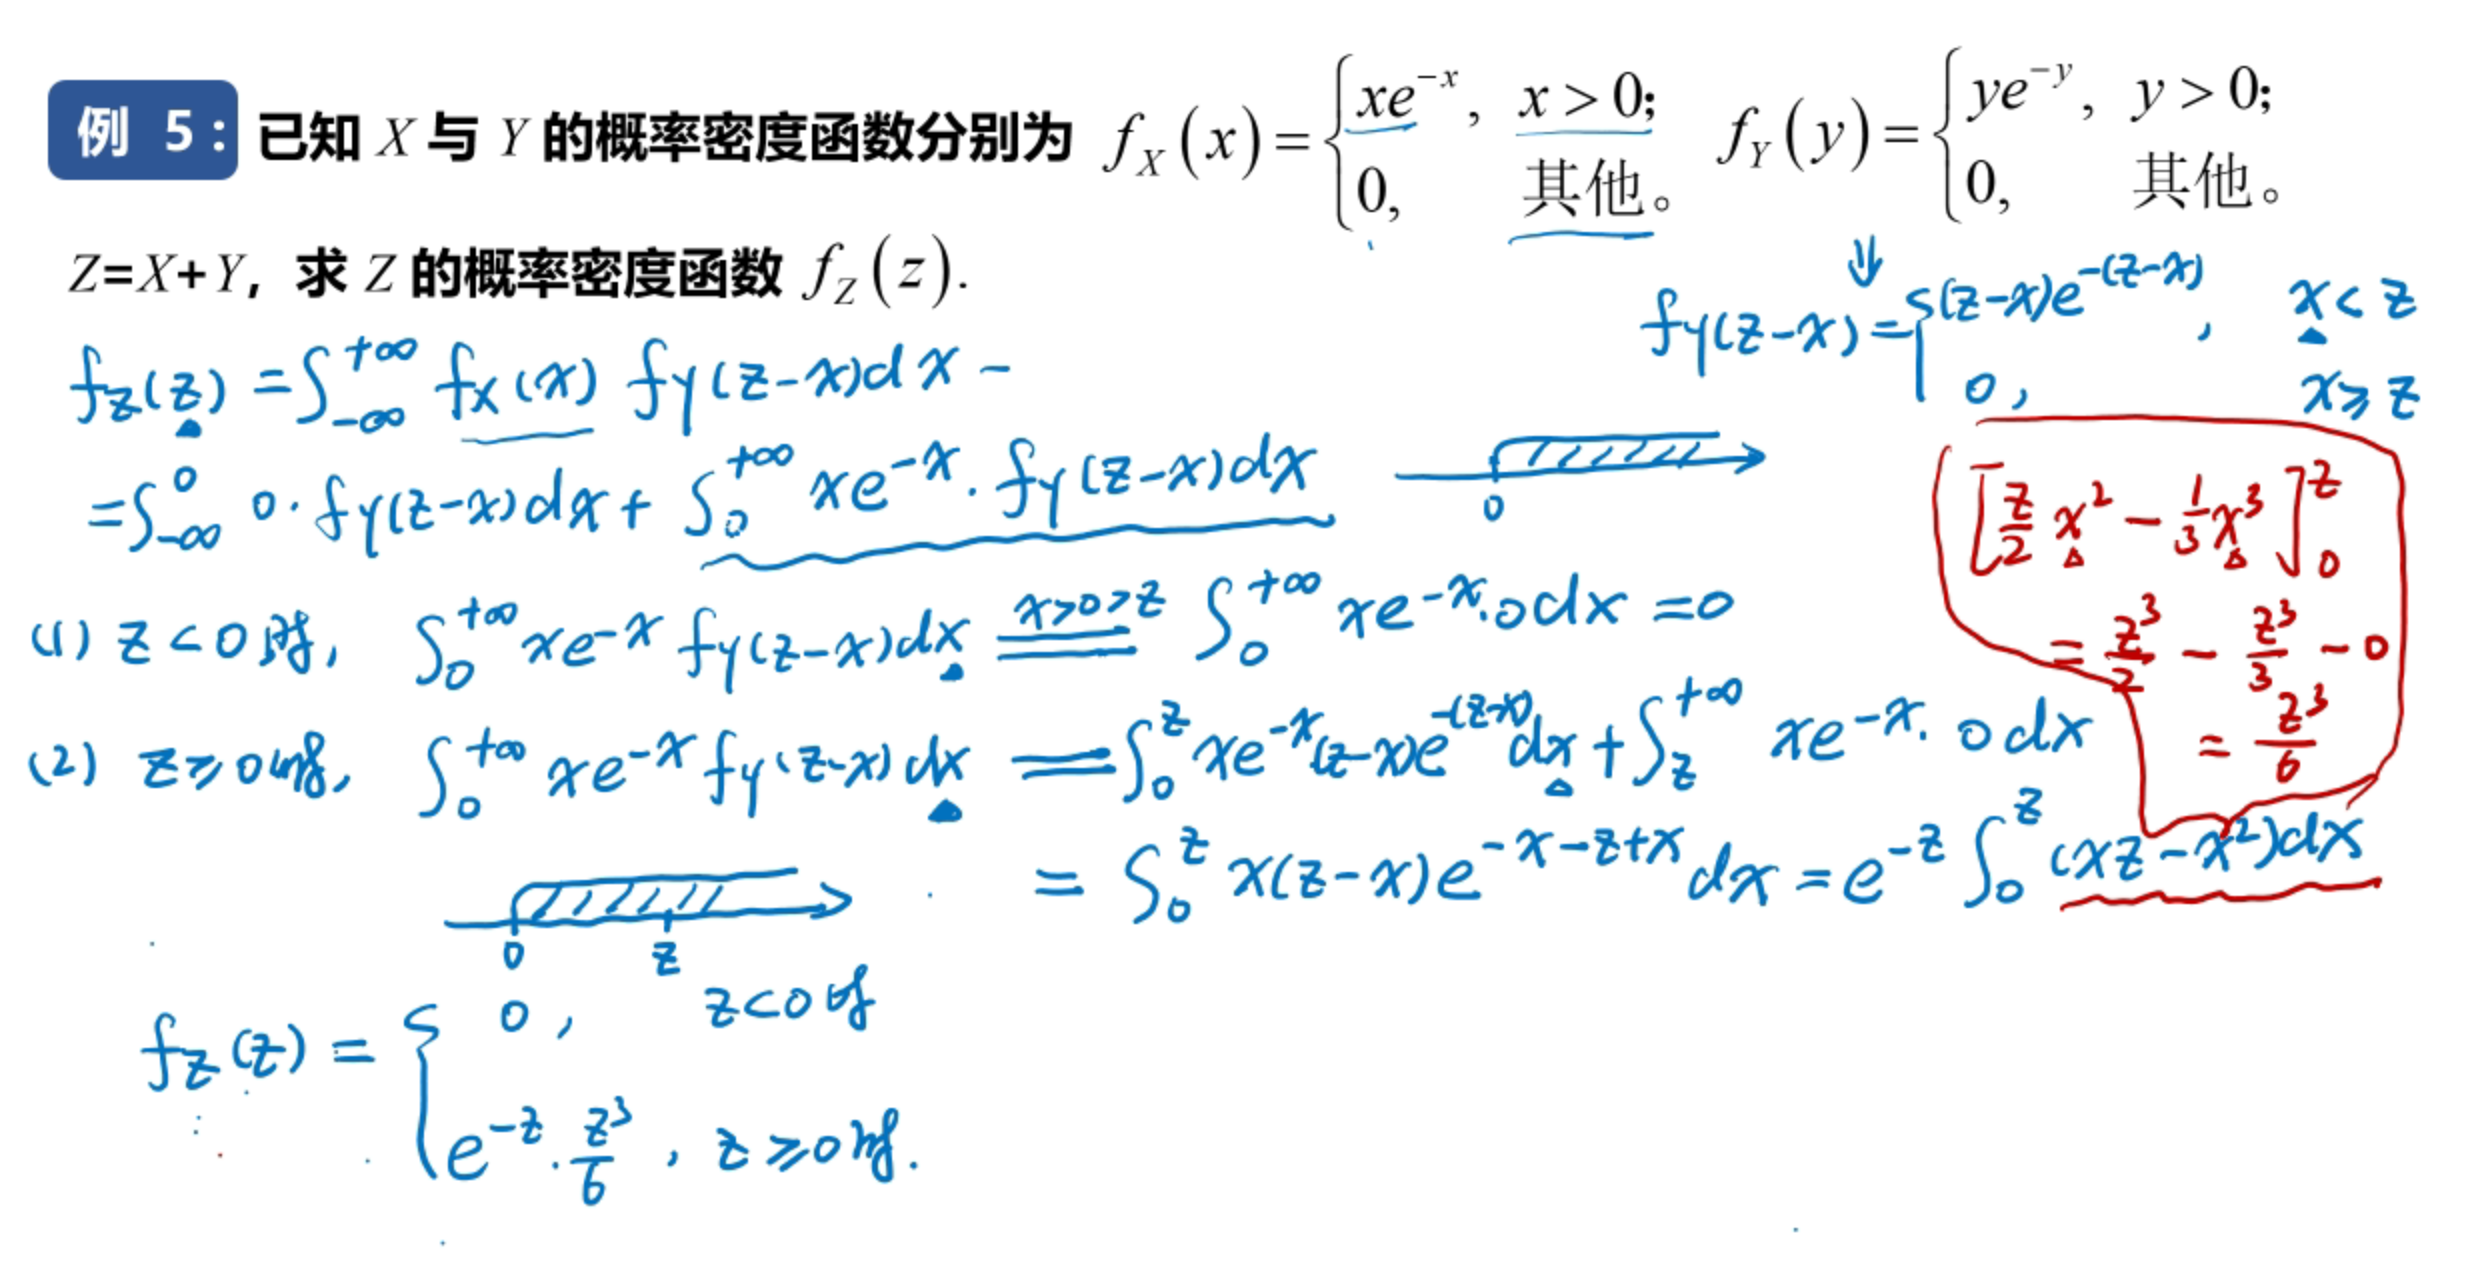 例 5: 已知 X 与 Y 的概率密度函数分别为 f_X(x) = { xe^{-x}, x > 0; 0, 其他。 f_Y(y) = { ye^{-y}, y > 0; 0, 其他。
Z=X+Y, 求 Z 的概率密度函数 f_Z(z).
f_Y(z-x) = { (z-x)e^{-(z-x)}, x < z
0, x ≥ z
f_Z(z) = ∫_{-∞}^{+∞} f_X(x) f_Y(z-x)dx -
= ∫_{-∞}^{0} 0·f_Y(z-x)dx + ∫_{0}^{+∞} xe^{-x}·f_Y(z-x)dx
0
[z/2 x² - 1/3 x³]_0^z
= z³/2 - z³/3 - 0
= z³/6
(1) z < 0 时, ∫_0^{+∞} xe^{-x} f_Y(z-x)dx = (x>0>z) ∫_0^{+∞} xe^{-x}·0dx = 0
(2) z ≥ 0时, ∫_0^{+∞} xe^{-x} f_Y(z-x)dx = ∫_0^z xe^{-x}(z-x)e^{-(z-x)}dx + ∫_z^{+∞} xe^{-x}·0dx
= ∫_0^z x(z-x)e^{-x-z+x}dx = e^{-z} ∫_0^z (xz-x²)dx
0 z
f_Z(z) = { 0, z<0时
e^{-z}·z³/6, z≥0时.